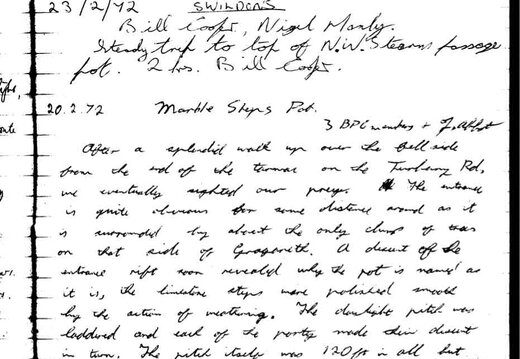 23/2/72 SWILDONS
Bill Cooper, Nigel Manly.
Steady trip to top of N.W. Stream passage
pot. 2 hrs. Bill Cooper.
20.2.72 Marble Steps Pot.
3 BPC members + J. Abbot
After a splendid walk up over the fell side
from the end of the tarmac on the Turbary Rd,
we eventually sighted our prey. The entrance
is quite obvious for some distance around as it
is surrounded by about the only clump of trees
on that side of Gragareth. A descent of the
entrance rift soon revealed why the pot is named as
it is, the limestone steps were polished smooth
by the action of weathering. The daylight pitch was
laddered and each of the party made their descent
in turn. The pitch itself was 120 ft in all but